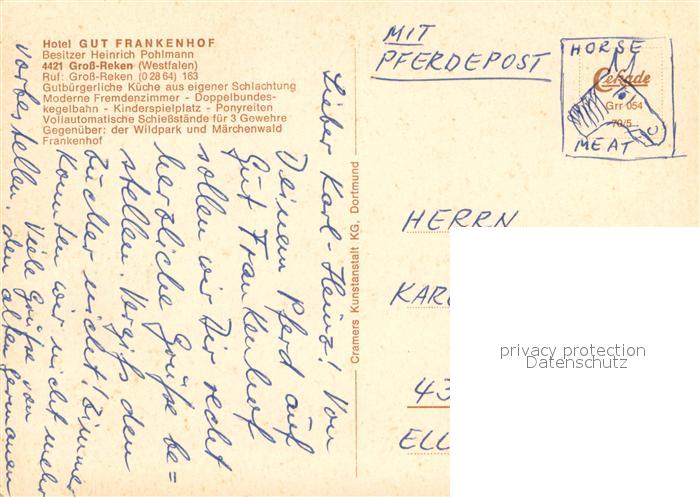 Hotel GUT FRANKENHOF
Besitzer Heinrich Pohlmann
4421 Groß-Reken (Westfalen)
Ruf: Groß-Reken (0 28 64) 163
Gutbürgerliche Küche aus eigener Schlachtung
Moderne Fremdenzimmer - Doppelbundes-
kegelbahn - Kinderspielplatz - Ponyreiten
Vollautomatische Schießstände für 3 Gewehre
Gegenüber: der Wildpark und Märchenwald
Frankenhof
Lieber Karl-Heinz! Von
Deinem Pferd auf
Gut Frankenhof
sollen wir Dir recht
herzliche Grüße be=
stellen. Vergiß den
Zucker nicht! Zimmer
konnten wir nicht mehr
vorbestellen. Viele Grüße von
den alten Germanen
Cramers Kunstanstalt KG, Dortmund
MIT
PFERDEPOST
HORSE
Cekade
Grr 054
70/5
MEAT
HERRN
KAR
43
ELL
privacy protection
Datenschutz